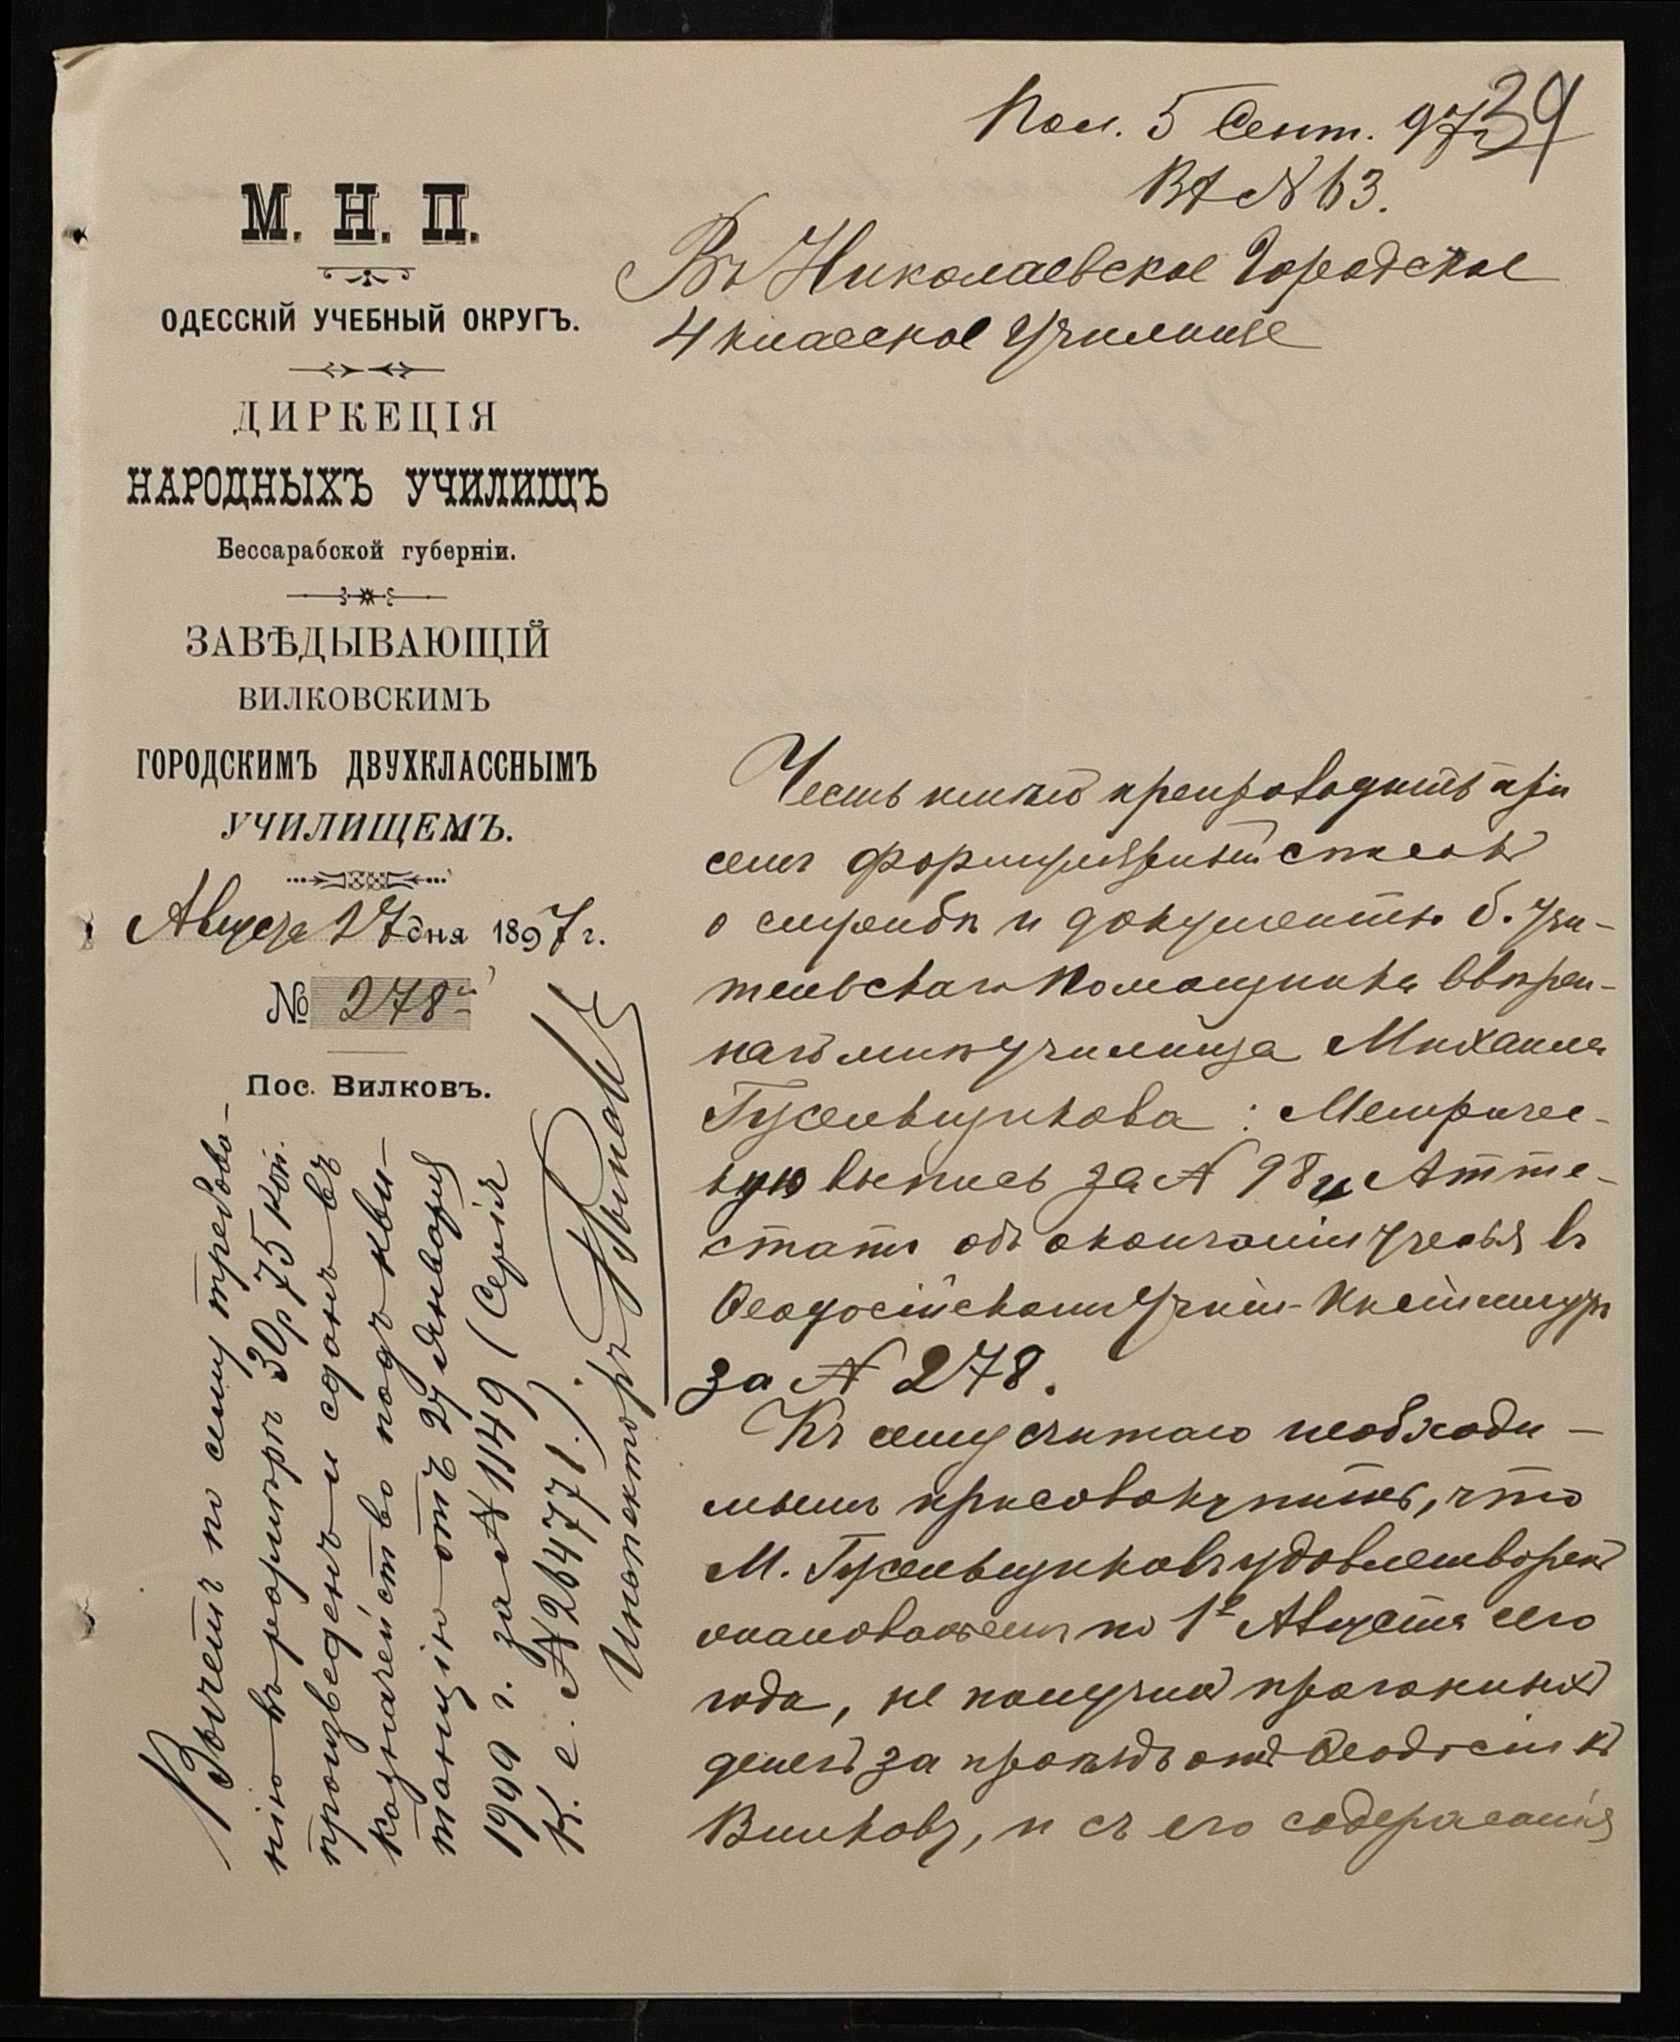 Пол. 5 Сент. 97 г.
39
Вх № 63.
М. Н. П.
ОДЕССКІЙ УЧЕБНЫЙ ОКРУГЪ.
ДИРКЕЦІЯ
НАРОДНЫХЪ УЧИЛИЩЪ
Бессарабской губерніи.
ЗАВѢДЫВАЮЩІЙ
ВИЛКОВСКИМЪ
ГОРОДСКИМЪ ДВУХКЛАССНЫМЪ
УЧИЛИЩЕМЪ.
Августа 27 дня 1897 г.
№ 278
Пос. Вилковъ.
Въ Николаевское Городское
4 классное Училище
Честь имѣю препроводить при
семъ формулярный списокъ
о службѣ и документы б. учи-
тельскаго Помощника ввѣрен-
наго мнѣ училища Михаила
Гужельщикова : Метричес-
кую выпись за № 98 и Атте-
статъ объ окончаніи ученья въ
Ѳеодосійскомъ Учит. Институтѣ
за № 278.
Къ сему считаю необходи-
мымъ присовокупить, что
М. Гужельщиковъ удовлетворенъ
жалованьемъ по 1е Августа сего
года, не получилъ прогонныхъ
денегъ за проѣздъ отъ Ѳеодосіи къ
Вилкову, и съ его содержанія
Вычетъ по сему требова-
нію въ размѣрѣ 30 р 75 коп.
произведенъ и сданъ въ
казначейство подъ кви-
танцію отъ 27 Января
1999 г. за № 1149 (Серія
К. е. № 264771.).
Инспекторъ